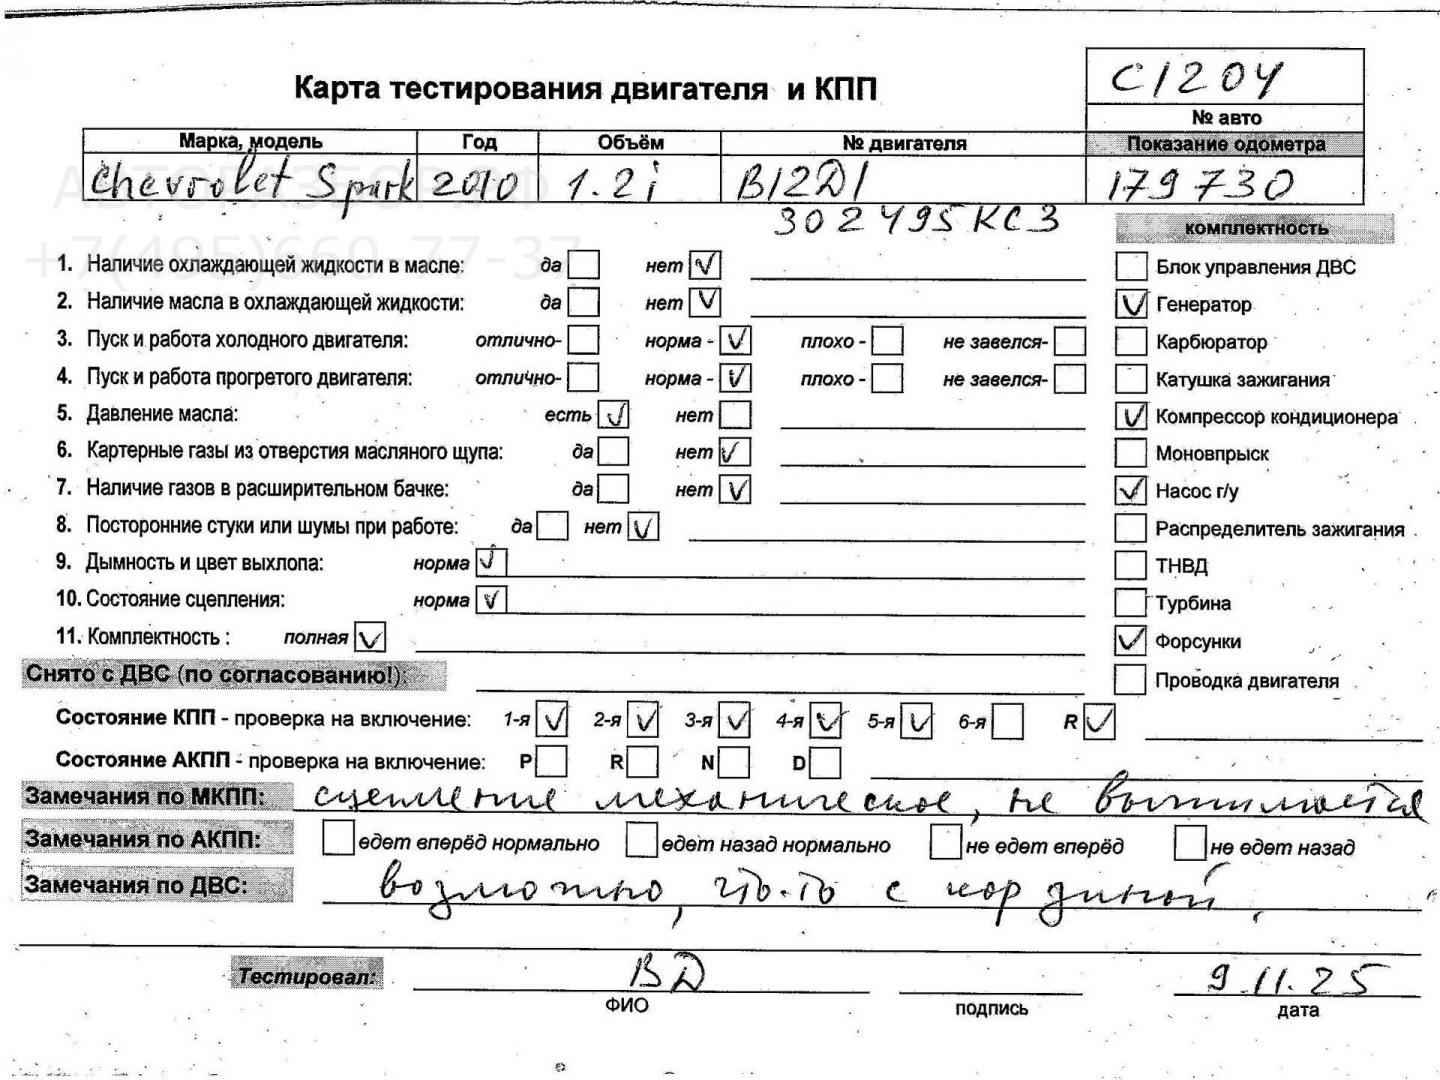 С1204
Карта тестирования двигателя и КПП
№ авто
Марка, модель Год Объём № двигателя Показание одометра
Chevrolet Spark 2010 1.2i B12D1 179730
302495КС3
АВТОРАЗБОР.РФ
+7(495)660-77-37
комплектность
1. Наличие охлаждающей жидкости в масле: да нет Блок управления ДВС
2. Наличие масла в охлаждающей жидкости: да нет Генератор
3. Пуск и работа холодного двигателя: отлично- норма - плохо - не завелся- Карбюратор
4. Пуск и работа прогретого двигателя: отлично- норма - плохо - не завелся- Катушка зажигания
5. Давление масла: есть нет Компрессор кондиционера
6. Картерные газы из отверстия масляного щупа: да нет Моновпрыск
7. Наличие газов в расширительном бачке: да нет Насос г/у
8. Посторонние стуки или шумы при работе: да нет Распределитель зажигания
9. Дымность и цвет выхлопа: норма ТНВД
10. Состояние сцепления: норма Турбина
11. Комплектность : полная Форсунки
Снято с ДВС (по согласованию!): Проводка двигателя
Состояние КПП - проверка на включение: 1-я 2-я 3-я 4-я 5-я 6-я R
Состояние АКПП - проверка на включение: P R N D
Замечания по МКПП: сцепление механическое, не выжимается
Замечания по АКПП: едет вперёд нормально едет назад нормально не едет вперёд не едет назад
Замечания по ДВС: возможно, что-то с корзиной.
Тестировал: ВД 9.11.25
ФИО подпись дата